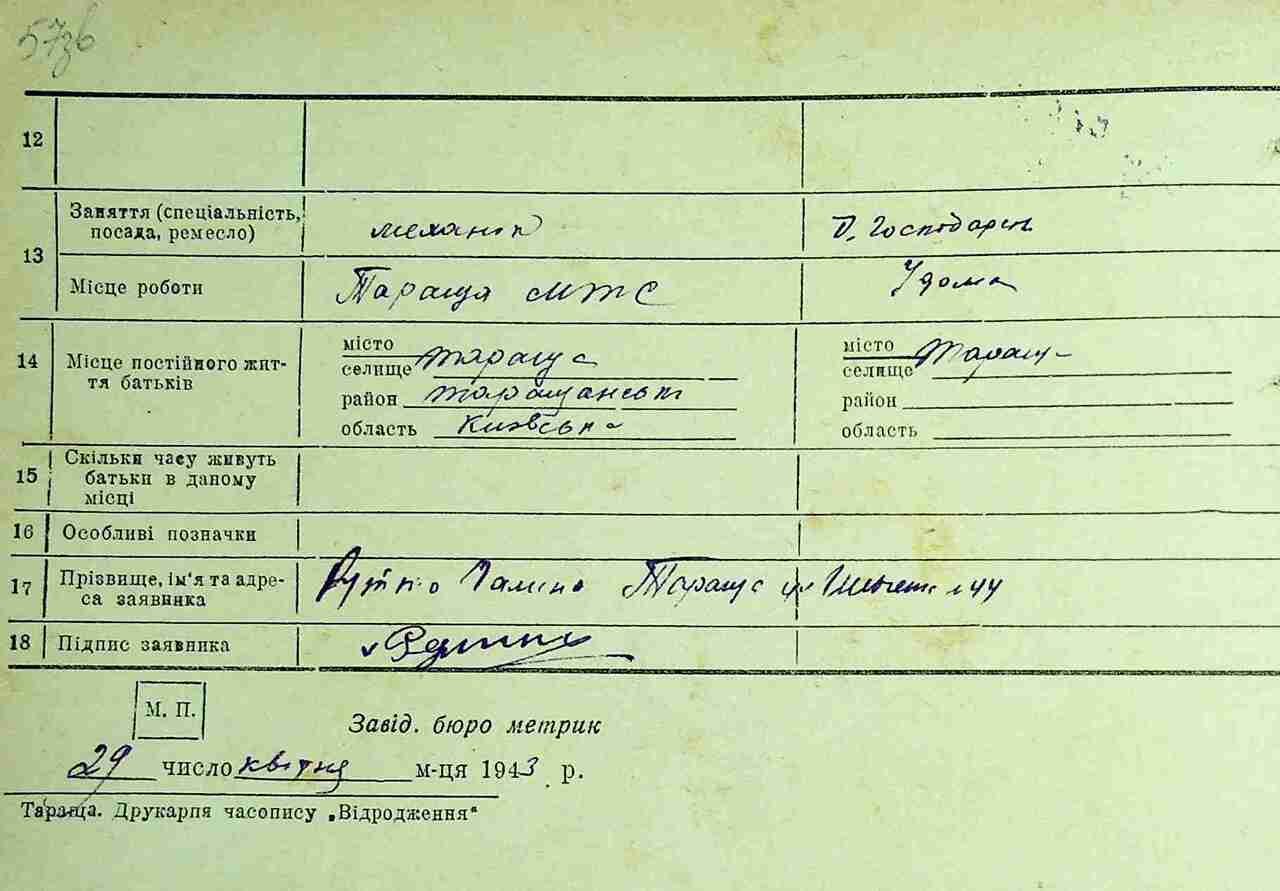 57зв
12
13 Заняття (спеціальність, посада, ремесло) механік Д. Господарка
Місце роботи Тараща МТС У дома
14 Місце постійного життя батьків
місто селище Тараща місто селище Тараща
район Таращанськ район
область Київська область
15 Скільки часу живуть батьки в даному місці
16 Особливі позначки
17 Прізвище, ім'я та адреса заявника Галина Тараща 44
18 Підпис заявника
М. П.
Завід. бюро метрик
29 число квітня м-ця 1943 р.
Тараща. Друкарня часопису „Відродження“